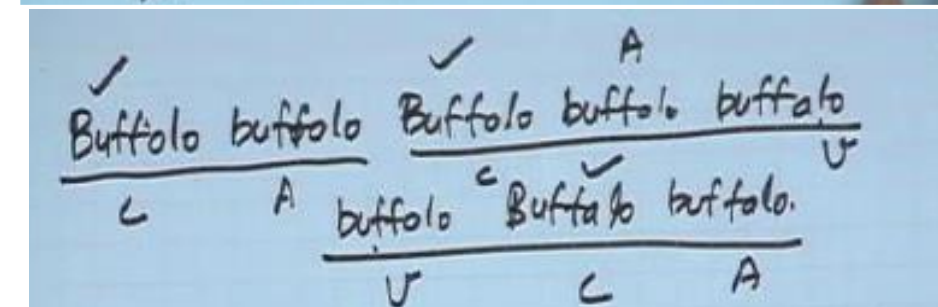 ✓ ✓ A
Buffolo buffolo Buffolo buffolo buffalo
C A C ✓ V
buffolo Buffalo buffolo.
V C A